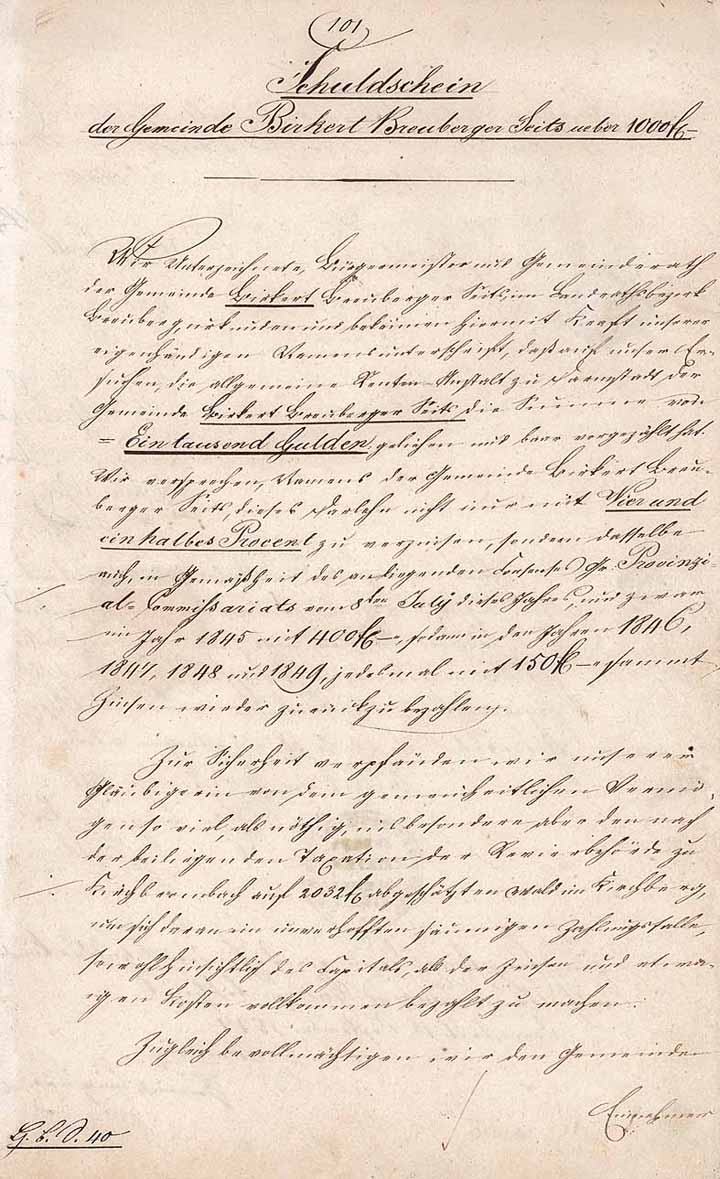 101
Schuldschein
der Gemeinde Birkert Breuberger Seits ueber 1000 fl –
Wir Unterzeichnete, Bürgermeister und Gemeinderath
der Gemeinde Birkert Breuberger Seits, im Landrathsbezirk
Breuberg, urkunden und bekennen hiermit Kraft unserer
eigenhändigen Namensunterschrift, daß auf unser Er-
suchen, die allgemeine Renten-Anstalt zu Darmstadt der
Gemeinde Birkert Breuberger Seits die Summe von
= Ein tausend Gulden geliehen und baar vorgezählt hat.
Wir versprechen, Namens der Gemeinde Birkert Breu-
berger Seits dieses Darlehn nicht nur mit Vier und
ein halbes Procent zu verzinsen, sondern dasselbe
auch, in Gemäßheit des anliegenden Consenses Gr. Provinzi-
al-Commissariats vom 8ten July dieses Jahres, und zwar
im Jahr 1845 mit 400 fl –, sodann in den Jahren 1846,
1847, 1848 und 1849, jedesmal mit 150 fl – sammt
Zinsen wieder zurückzubezahlen.
Zur Sicherheit verpfänden wir unserer
Gläubigerin von dem gemeinheitlichen Vermö-
gen so viel, als nöthig, insbesondere aber den nach
der beiliegenden Taxation der Revierbehörde zu
Kirchbrombach auf 2032 fl abgeschätzten Wald im Kirchberg,
um sich daran im unverhofften säumigen Zahlungsfalle,
sowohl hinsichtlich des Capitals, als der Zinsen und etwa-
igen Kosten vollkommen bezahlt zu machen.
Zugleich bevollmächtigen wir den Gemeinde-
Einnehmer
G. b. D. 40